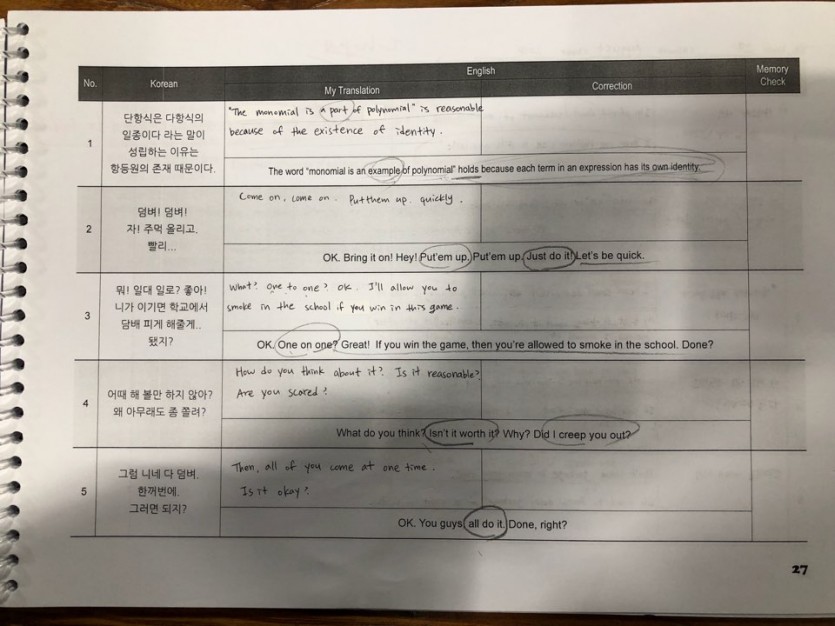 No.
Korean
English
My Translation
Correction
Memory
Check
1
단항식은 다항식의
일종이다 라는 말이
성립하는 이유는
항등원의 존재 때문이다.
"The monomial is a part of polynomial" is reasonable
because of the existence of identity.
The word "monomial is an example of polynomial" holds because each term in an expression has its own identity.
2
덤벼! 덤벼!
자! 주먹 올리고.
빨리...
Come on, come on. Put them up. quickly.
OK. Bring it on! Hey! Put'em up, Put'em up. Just do it! Let's be quick.
3
뭐! 일대 일로? 좋아!
니가 이기면 학교에서
담배 피게 해줄게..
됐지?
What? one to one? OK. I'll allow you to
smoke in the school if you win in this game.
OK. One on one? Great! If you win the game, then you're allowed to smoke in the school. Done?
4
어때 해 볼만 하지 않아?
왜 아무래도 좀 쫄려?
How do you think about it? Is it reasonable?
Are you scared?
What do you think? Isn't it worth it? Why? Did I creep you out?
5
그럼 니네 다 덤벼.
한꺼번에.
그러면 되지?
Then, all of you come at one time.
Is it okay?
OK. You guys all do it. Done, right?
27